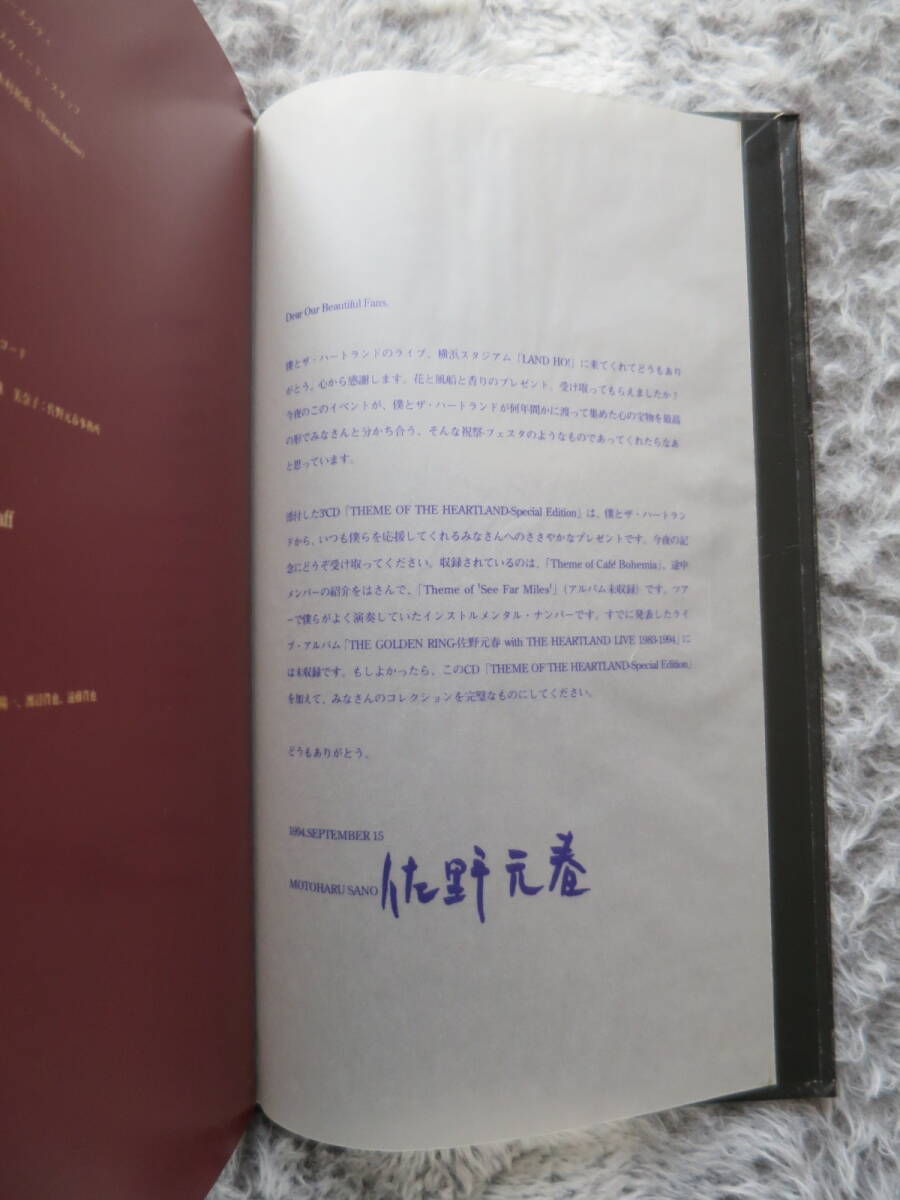 ーエンティ
(Team Active)
コード
美奈子:佐野元春事務所
aff
陽一、渡辺貴也、遠藤貴也
Dear Our Beautiful Fans,
僕とザ・ハートランドのライブ、横浜スタジアム「LAND HO!」に来てくれてどうもあり
がとう。心から感謝します。花と風船と香りのプレゼント、受け取ってもらえましたか?
今夜のこのイベントが、僕とザ・ハートランドが何年間かに渡って集めた心の宝物を最高
の形でみなさんと分かち合う、そんな祝祭-フェスタのようなものであってくれたらなあ
と思っています。
添付した3"CD「THEME OF THE HEARTLAND-Special Edition」は、僕とザ・ハートラン
ドから、いつも僕らを応援してくれるみなさんへのささやかなプレゼントです。今夜の記
念にどうぞ受け取ってください。収録されているのは、「Theme of Café Bohemia」、途中
メンバーの紹介をはさんで、「Theme of 'See Far Miles'」(アルバム未収録)です。ツア
ーで僕らがよく演奏していたインストルメンタル・ナンバーです。すでに発表したライ
ブ・アルバム「THE GOLDEN RING-佐野元春 with THE HEARTLAND LIVE 1983-1994」に
は未収録です。もしよかったら、このCD「THEME OF THE HEARTLAND-Special Edition」
を加えて、みなさんのコレクションを完璧なものにしてください。
どうもありがとう。
1994.SEPTEMBER 15
MOTOHARU SANO 佐野元春